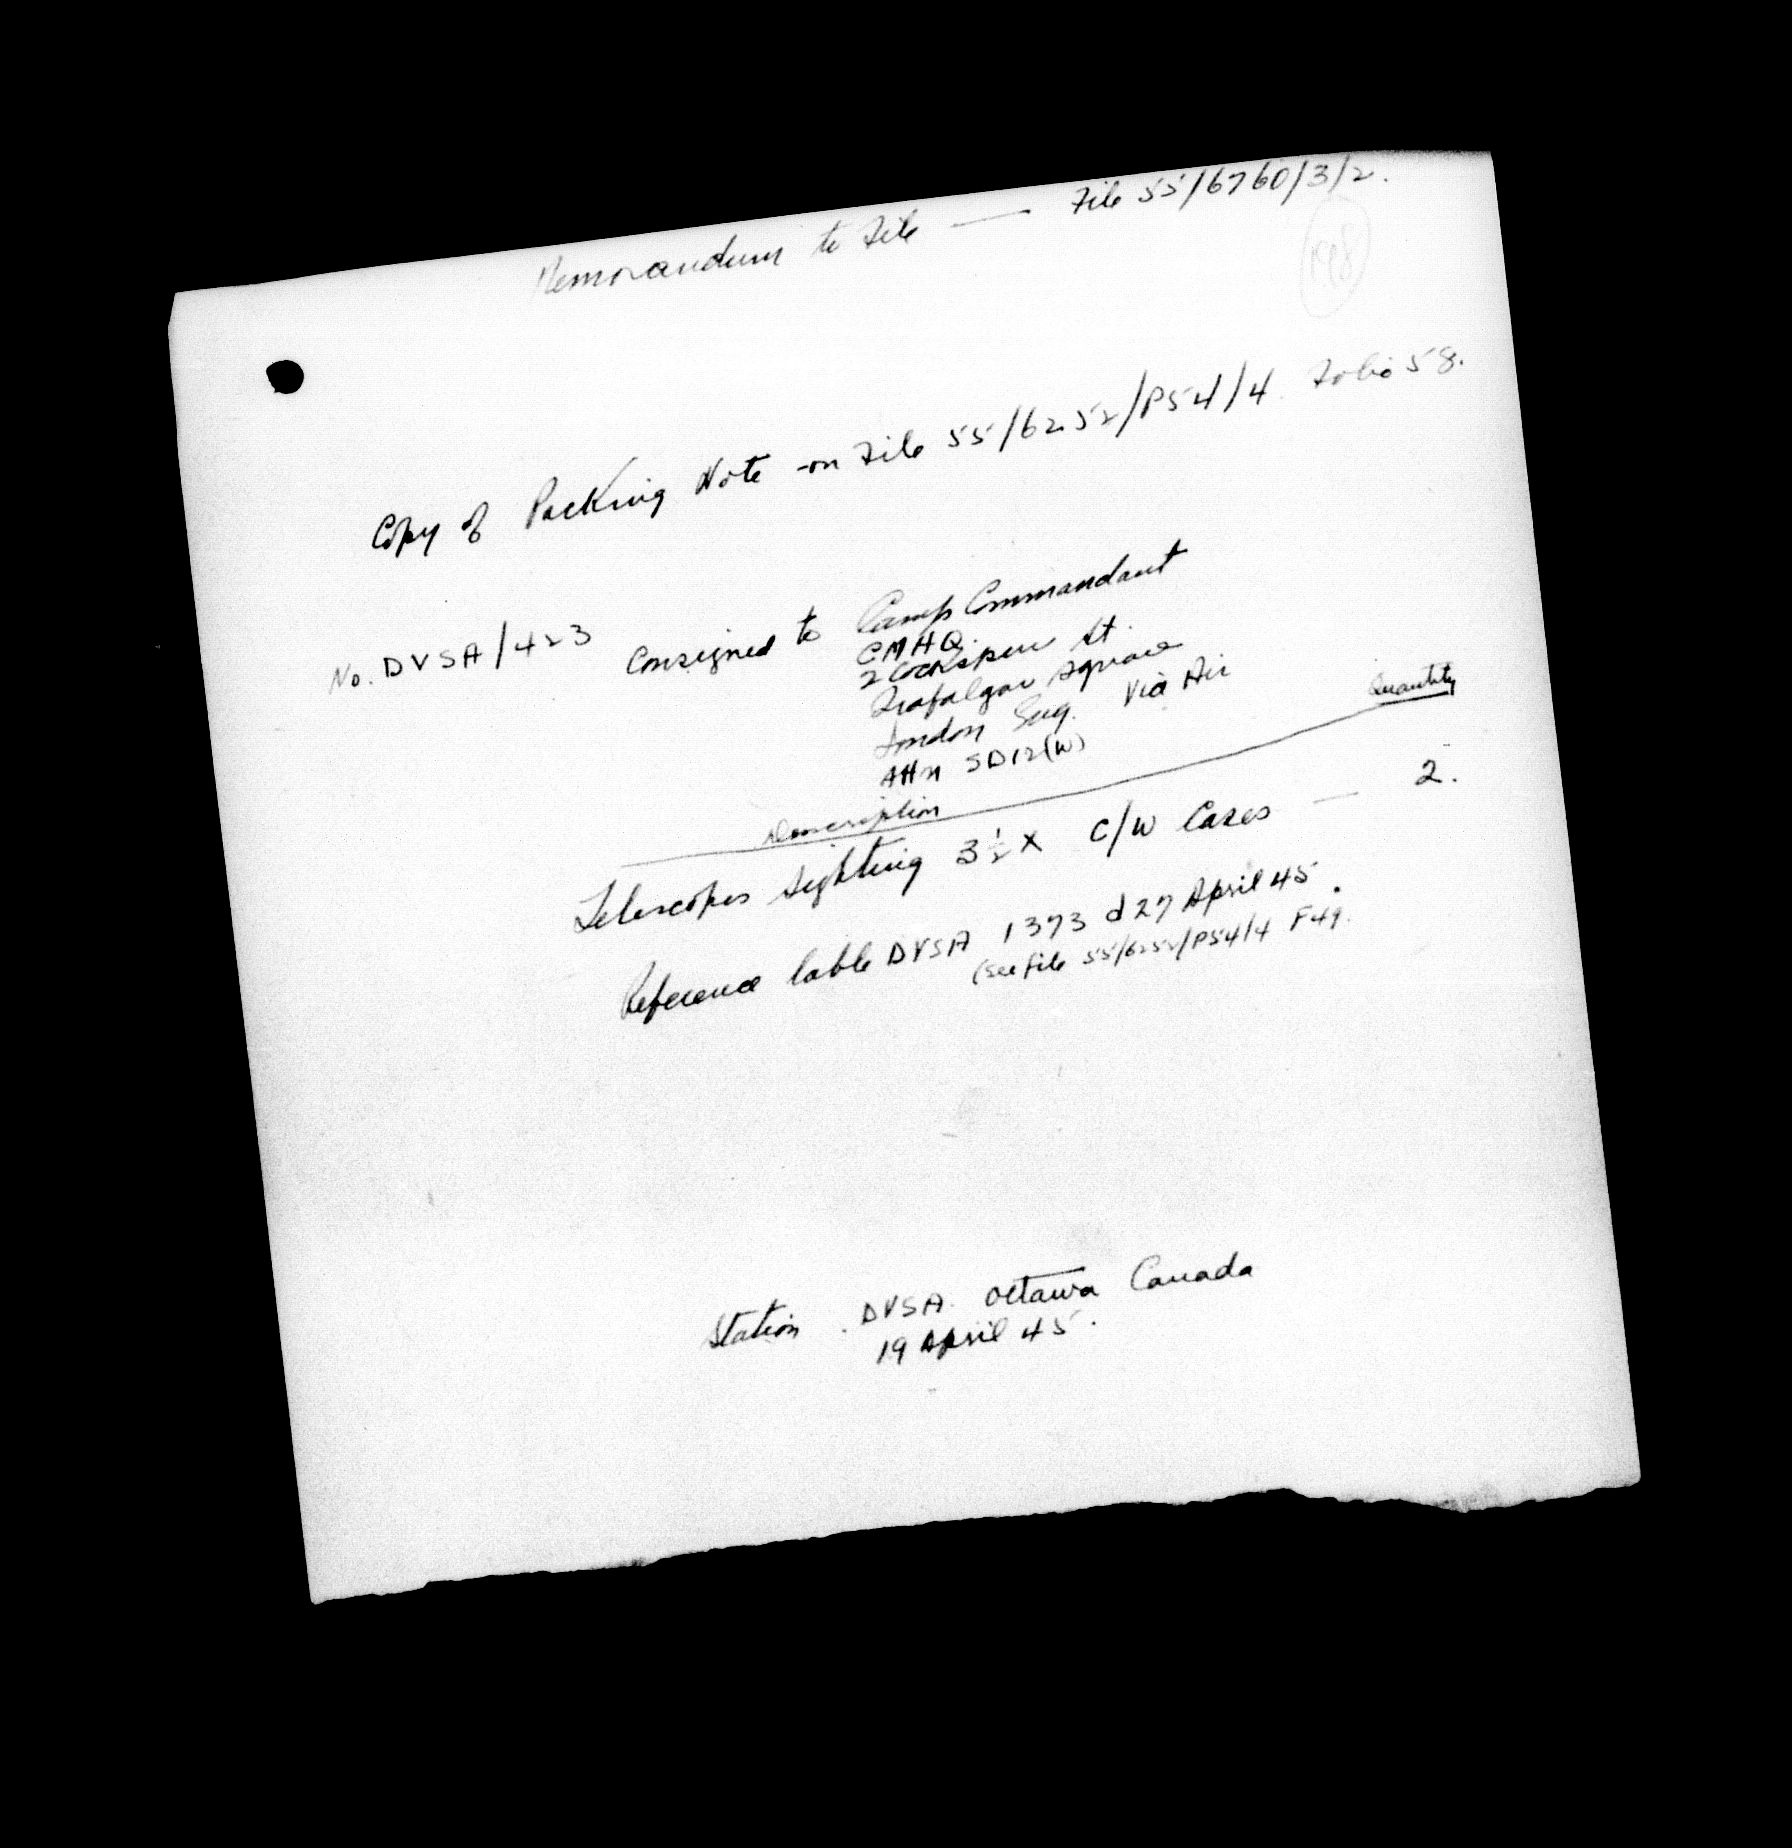 Memorandum to File — File 55/6760/3/2.
198
Copy of Packing Note on File 55/6252/P54/4 Folio 58.
No. DVSA/423 Consigned to Camp Commandant
CMHQ
2 Cockspur St.
Trafalgar Square
London Eng. Via Air
Attn SD12(W)
Description Quantity
Telescopes Sighting 3½ X C/W Cases — 2.
Reference Cable DVSA 1373 d 27 April 45.
(See File 55/6252/P54/4 F49.
Station. DVSA. Ottawa Canada
19 April 45.